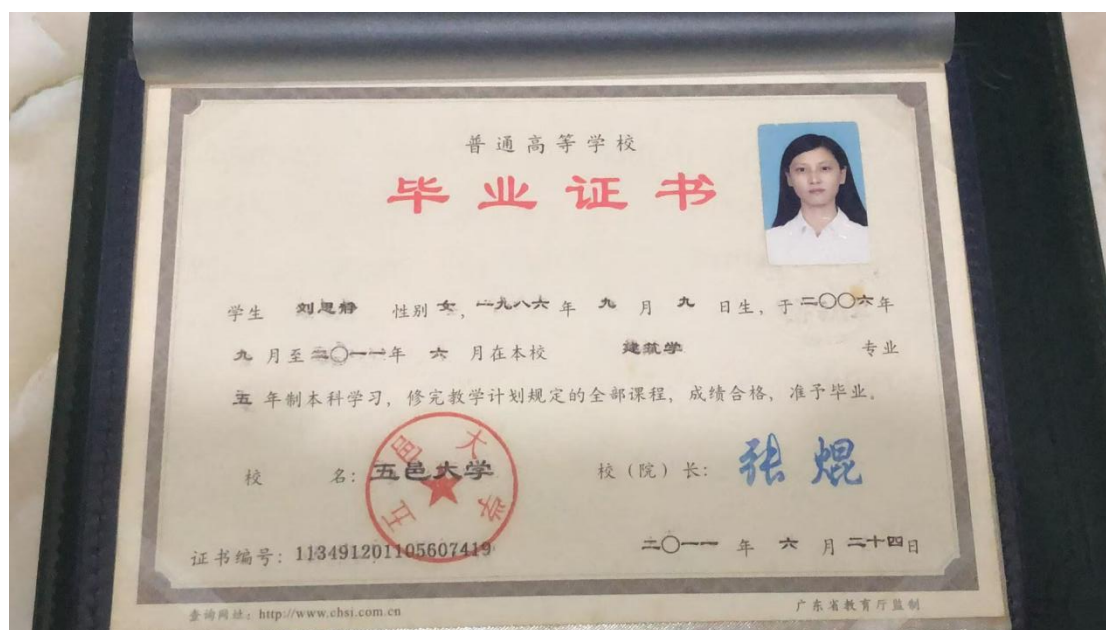 普通高等学校
毕业证书
学生 刘思静 性别 女，一九八六年 九 月 九 日生，于二〇〇六年
九 月至二〇一一年 六 月在本校 建筑学 专业
五 年制本科学习，修完教学计划规定的全部课程，成绩合格，准予毕业。
校 名：五邑大学 校（院）长：张焜
五邑大学
证书编号：113491201105607419 二〇一一 年 六 月 二十四日
查询网址：http://www.chsi.com.cn 广东省教育厅监制